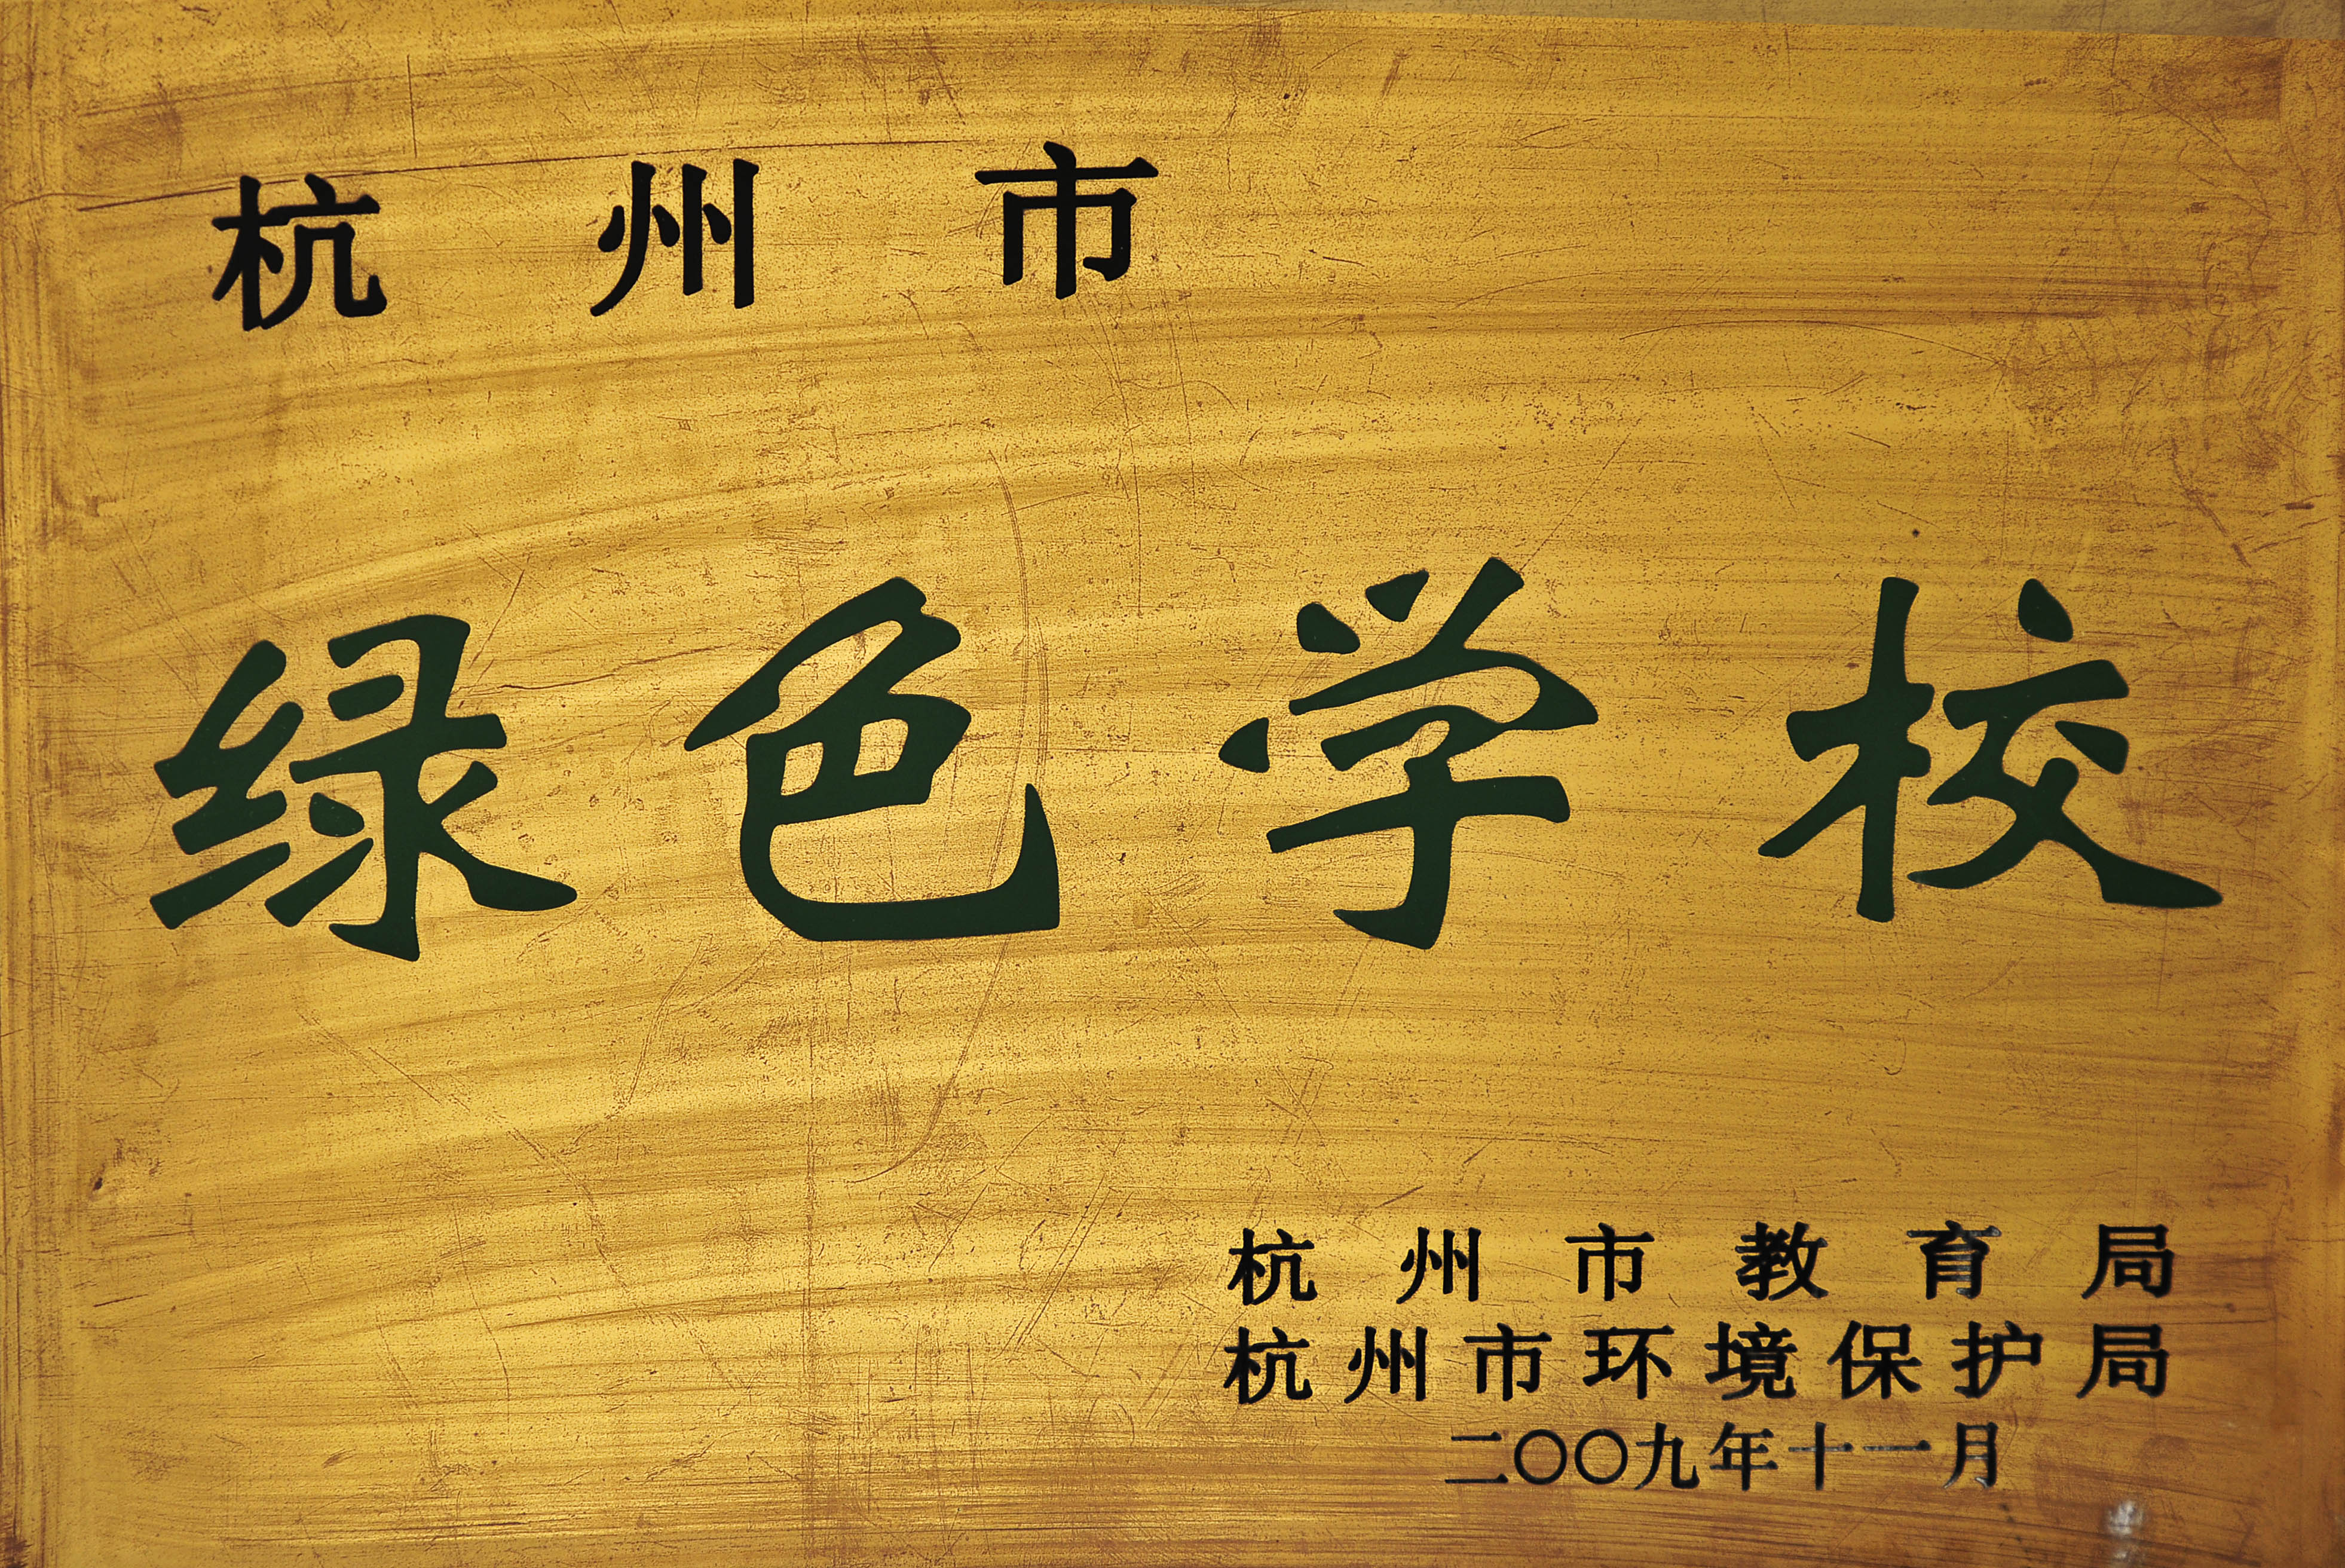 杭州市
绿色学校
杭州市教育局
杭州市环境保护局
二〇〇九年十一月